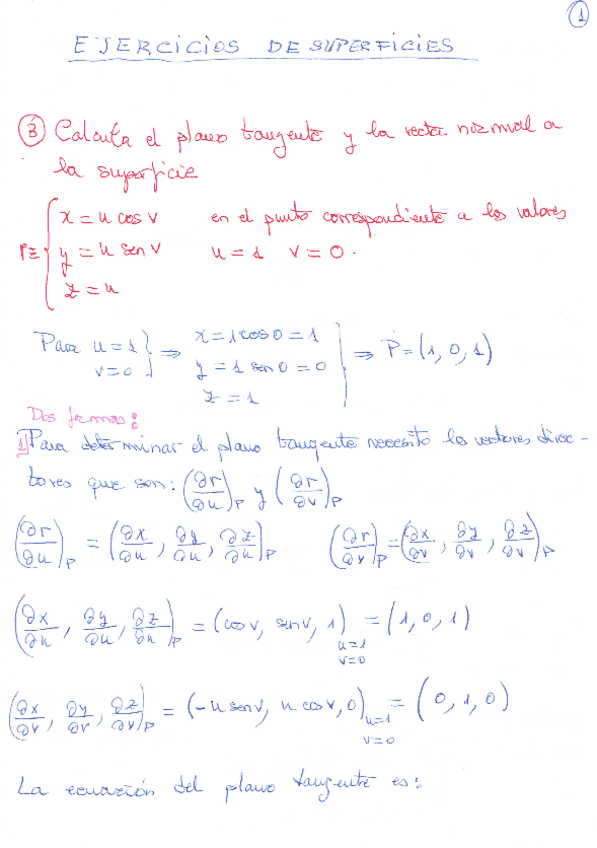 1
EJERCICIOS DE SUPERFICIES
3 Calcula el plano tangente y la recta normal a
la superficie
r≡ { x = u cos v en el punto correspondiente a los valores
y = u sen v u = 1 v = 0.
z = u
Para u = 1 } ⇒ x = 1 cos 0 = 1 } ⇒ P = (1, 0, 1)
v = 0 y = 1 sen 0 = 0
z = 1
Dos formas:
1) Para determinar el plano tangente necesito los vectores direc-
tores que son: (∂r/∂u)_P y (∂r/∂v)_P
(∂r/∂u)_P = (∂x/∂u, ∂y/∂u, ∂z/∂u)_P (∂r/∂v)_P = (∂x/∂v, ∂y/∂v, ∂z/∂v)_P
(∂x/∂u, ∂y/∂u, ∂z/∂u)_P = (cos v, sen v, 1) u=1 v=0 = (1, 0, 1)
(∂x/∂v, ∂y/∂v, ∂z/∂v)_P = (-u sen v, u cos v, 0) u=1 v=0 = (0, 1, 0)
La ecuación del plano tangente es: